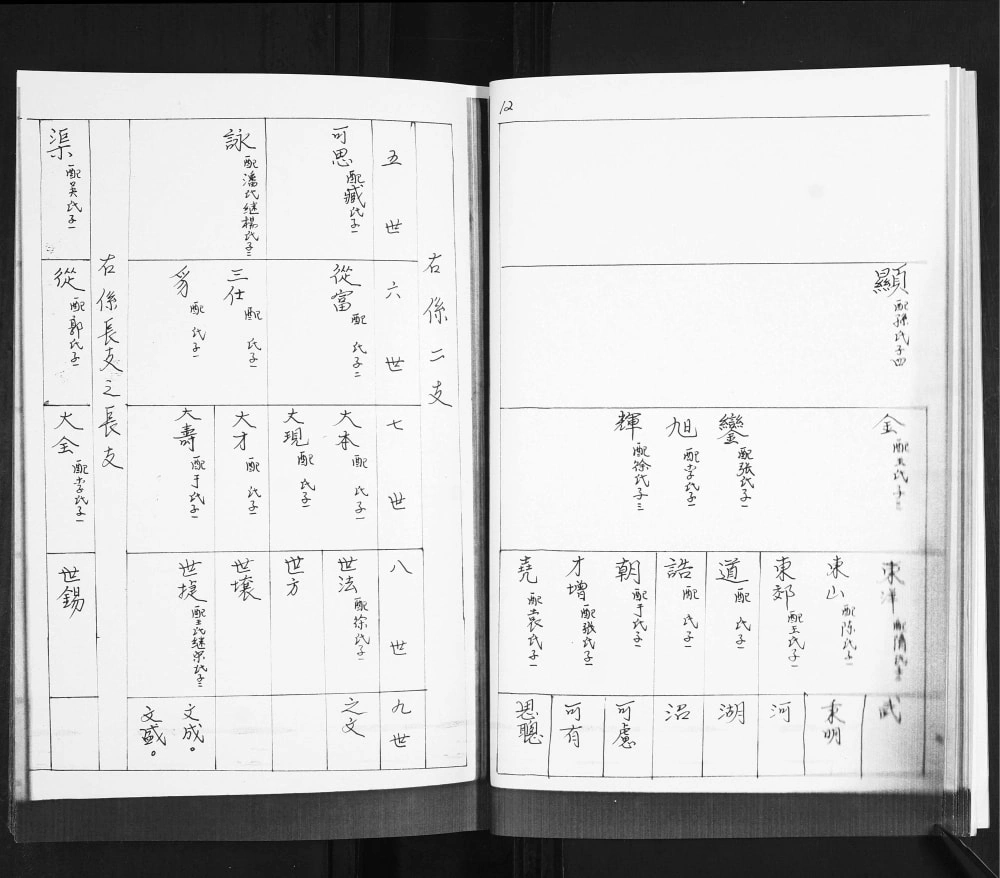 12
顯 配孫氏子四
金 配王氏子三
鑾 配張氏子一
旭 配李氏子一
輝 配徐氏子三
東洋
東山 配陳氏子一
東郊 配王氏子一
道 配 氏子一
誥 配 氏子一
朝 配于氏子一
才增 配張氏子一
堯 配袁氏子一
武
東明
河
湖
沼
可慮
可有
思聰
右係二支
五世
六世
七世
八世
九世
可思 配臧氏子一
詠 配潘氏继楊氏子二
從富 配 氏子二
三仕 配 氏子一
配 氏子一
大本 配 氏子一
大現 配 氏子一
大才 配 氏子一
大壽 配于氏子一
世法 配徐氏子一
世方
世壤
世捷 配王氏继宋氏子二
之文
文成。
文盛。
右係長支之長支
渠 配吳氏子一
從 配郭氏子一
大全 配李氏子一
世錫